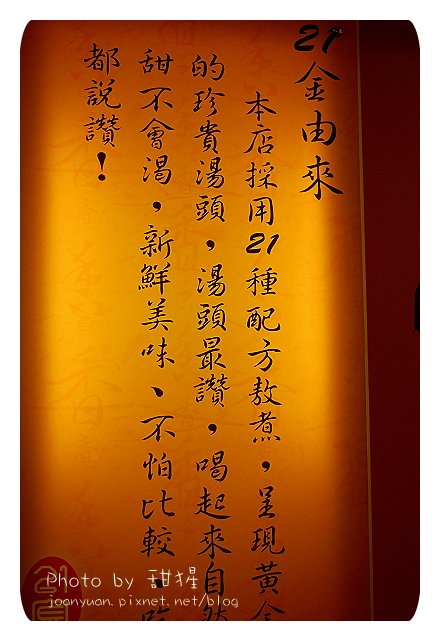 21金由來
本店採用21種配方敖煮,呈現黃金
的珍貴湯頭,湯頭最讚,喝起來自然
甜不會渴,新鮮美味、不怕比較,吃
都說讚!
Photo by 甜猩
joanyuan.pixnet.net/blog